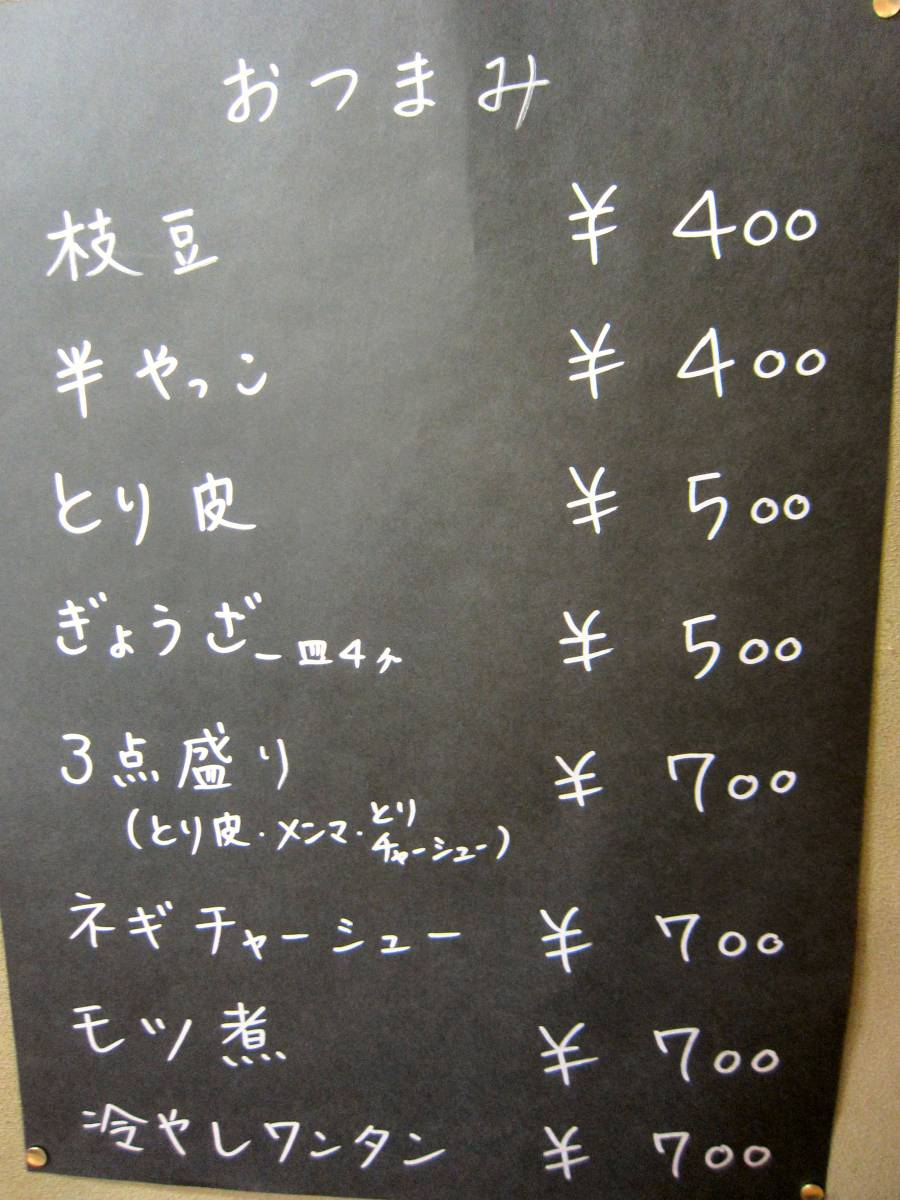 おつまみ
枝豆 ¥400
半やっこ ¥400
とり皮 ¥500
ぎょうざ一皿4ヶ ¥500
3点盛り ¥700
(とり皮・メンマ・とりチャーシュー)
ネギチャーシュー ¥700
モツ煮 ¥700
冷やしワンタン ¥700